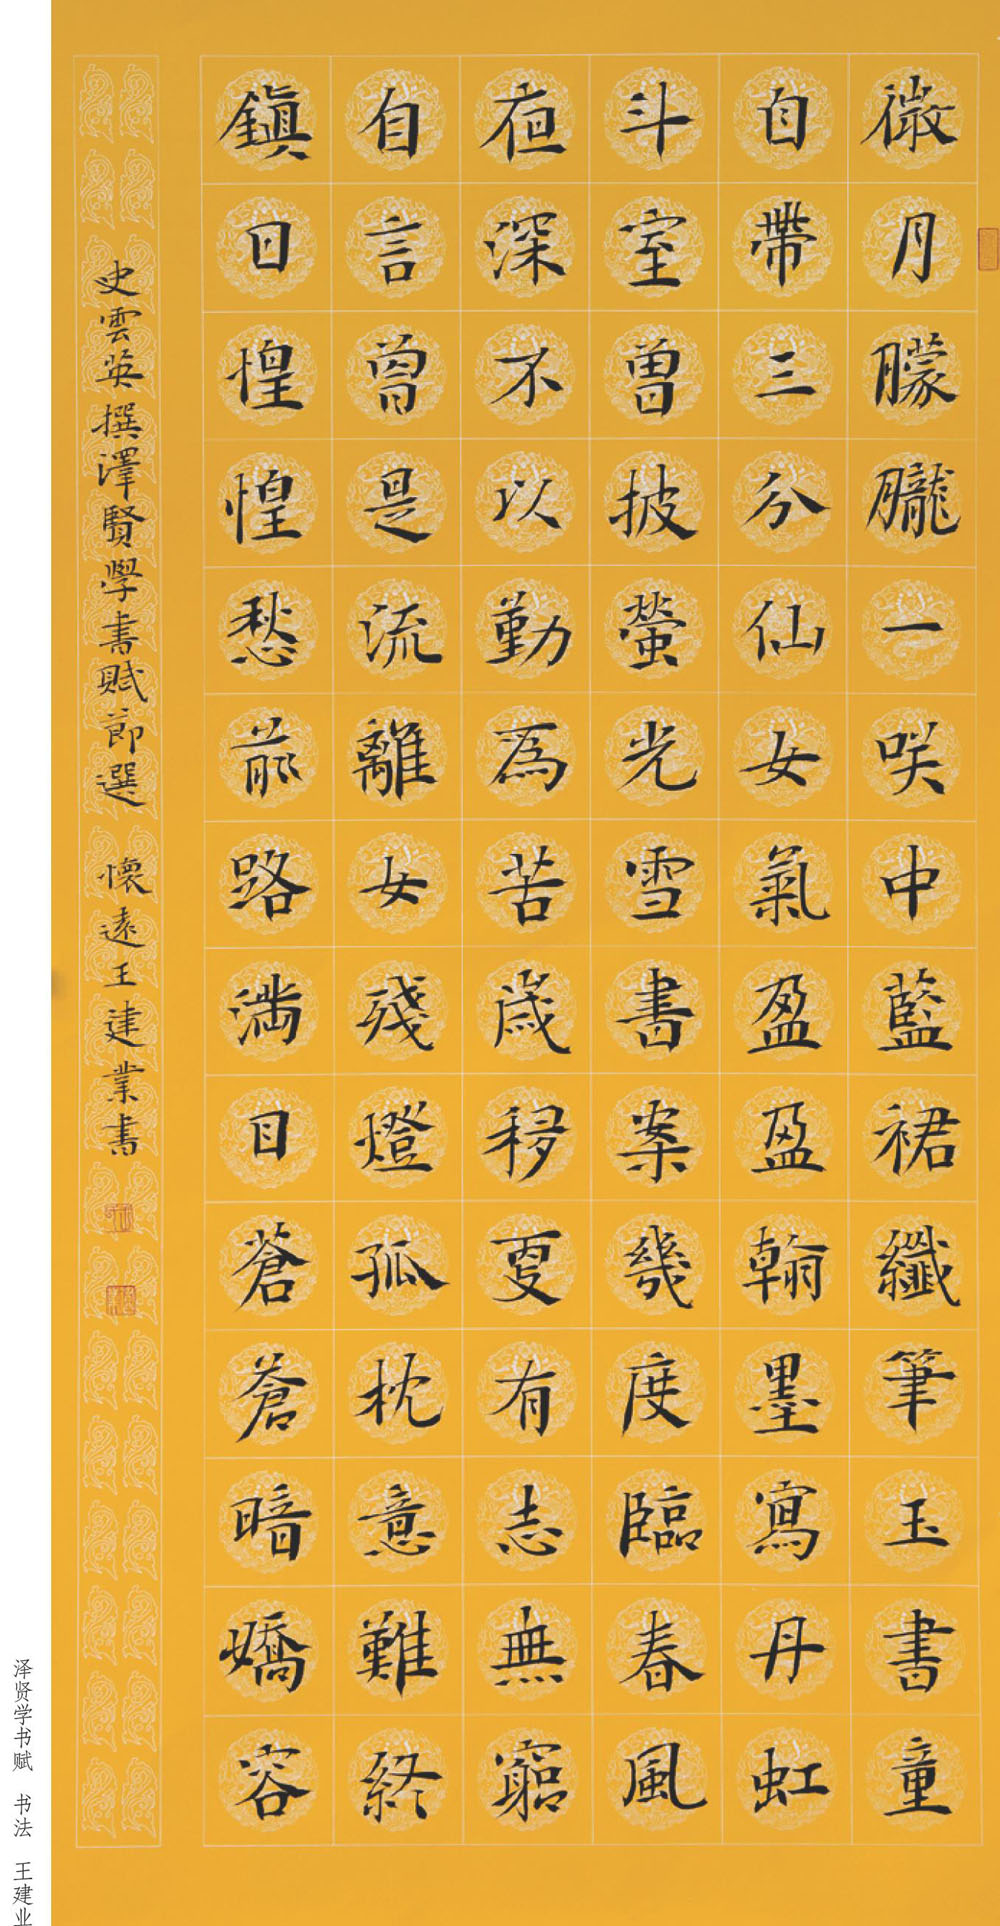 微月朦朧一咲中藍裙纖筆玉書童
自帶三分仙女氣盈盈翰墨寫丹虹
斗室曽披螢光雪書案幾度臨春風
夜深不以勤為苦歲移夏有志無窮
自言曾是流離女殘燈孤枕意難終
鎮日惶惶愁前路滿目蒼蒼暗嬌容
史雲英撰澤賢學書賦節選 懷遠王建業書
泽贤学书赋 书法 王建业